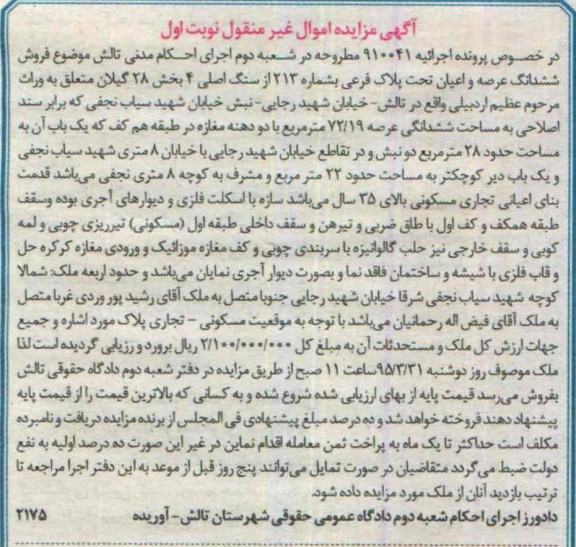 آگهی مزایده اموال غیر منقول نوبت اول
در خصوص پرونده اجرائیه ۹۱۰۰۴۱ مطروحه در شعبه دوم اجرای احکام مدنی تالش موضوع فروش
ششدانگ عرصه و اعیان تحت پلاک فرعی بشماره ۲۱۳ از سنگ اصلی ۴ بخش ۲۸ گیلان متعلق به وراث
مرحوم عظیم اردبیلی واقع در تالش- خیابان شهید رجایی- نبش خیابان شهید سیاب نجفی که برابر سند
اصلاحی به مساحت ششدانگی عرصه ۷۲/۱۹ مترمربع با دو دهنه مغازه در طبقه هم کف که یک باب آن به
مساحت حدود ۲۸ متر مربع دو نبش و در تقاطع خیابان شهید رجایی با خیابان ۸ متری شهید سیاب نجفی
و یک باب دیر کوچکتر به مساحت حدود ۲۲ متر مربع و مشرف به کوچه ۸ متری نجفی می‌باشد قدمت
بنای اعیانی تجاری مسکونی بالای ۳۵ سال می‌باشد سازه با اسکلت فلزی و دیوارهای آجری بوده وسقف
طبقه همکف و کف اول با طاق ضربی و تیرهن و سقف داخلی طبقه اول (مسکونی) تیرریزی چوبی و لمه
کوبی و سقف خارجی نیز حلب گالوانیزه با سربندی چوبی و کف مغازه موزائیک و ورودی مغازه کرکره حل
و قاب فلزی با شیشه و ساختمان فاقد نما و بصورت دیوار آجری نمایان می‌باشد و حدود اربعه ملک: شمالا
کوچه شهید سیاب نجفی شرقا خیابان شهید رجایی جنوبا متصل به ملک آقای رشید پور وردی غربا متصل
به ملک آقای فیض اله رحمانیان می‌باشد با توجه به موقعیت مسکونی – تجاری پلاک مورد اشاره و جمیع
جهات ارزش کل ملک و مستحدثات آن به مبلغ کل ۲/۱۰۰/۰۰۰/۰۰۰ ریال برورد و رزیابی گردیده است لذا
ملک موصوف روز دوشنبه ۹۵/۳/۳۱ ساعت ۱۱ صبح از طریق مزایده در دفتر شعبه دوم دادگاه حقوقی تالش
بفروش می‌رسد قیمت پایه از بهای ارزیابی شده شروع شده و به کسانی که بالاترین قیمت را از قیمت پایه
پیشنهاد دهند فروخته خواهد شد و ده درصد مبلغ پیشنهادی فی المجلس از برنده مزایده دریافت و نامبرده
مکلف است حداکثر تا یک ماه به پراخت ثمن معامله اقدام نماین در غیر این صورت ده درصد اولیه به نفع
دولت ضبط می‌گردد متقاضیان در صورت تمایل می‌توانند پنج روز قبل از موعد به این دفتر اجرا مراجعه تا
ترتیب بازدید آنان از ملک مورد مزایده داده شود.
دادورز اجرای احکام شعبه دوم دادگاه عمومی حقوقی شهرستان تالش- آوریده ۲۱۷۵